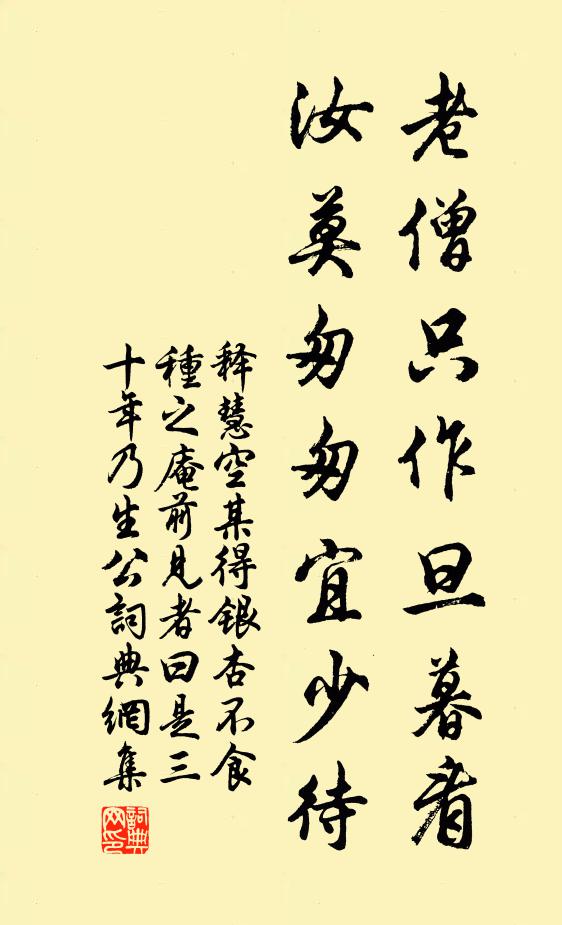 老僧只作旦暮看
汝莫匆匆宜少待
释慧空某得银杏不食
種之庵前見者曰是三
十年乃生公詞典網集
詞典
网印